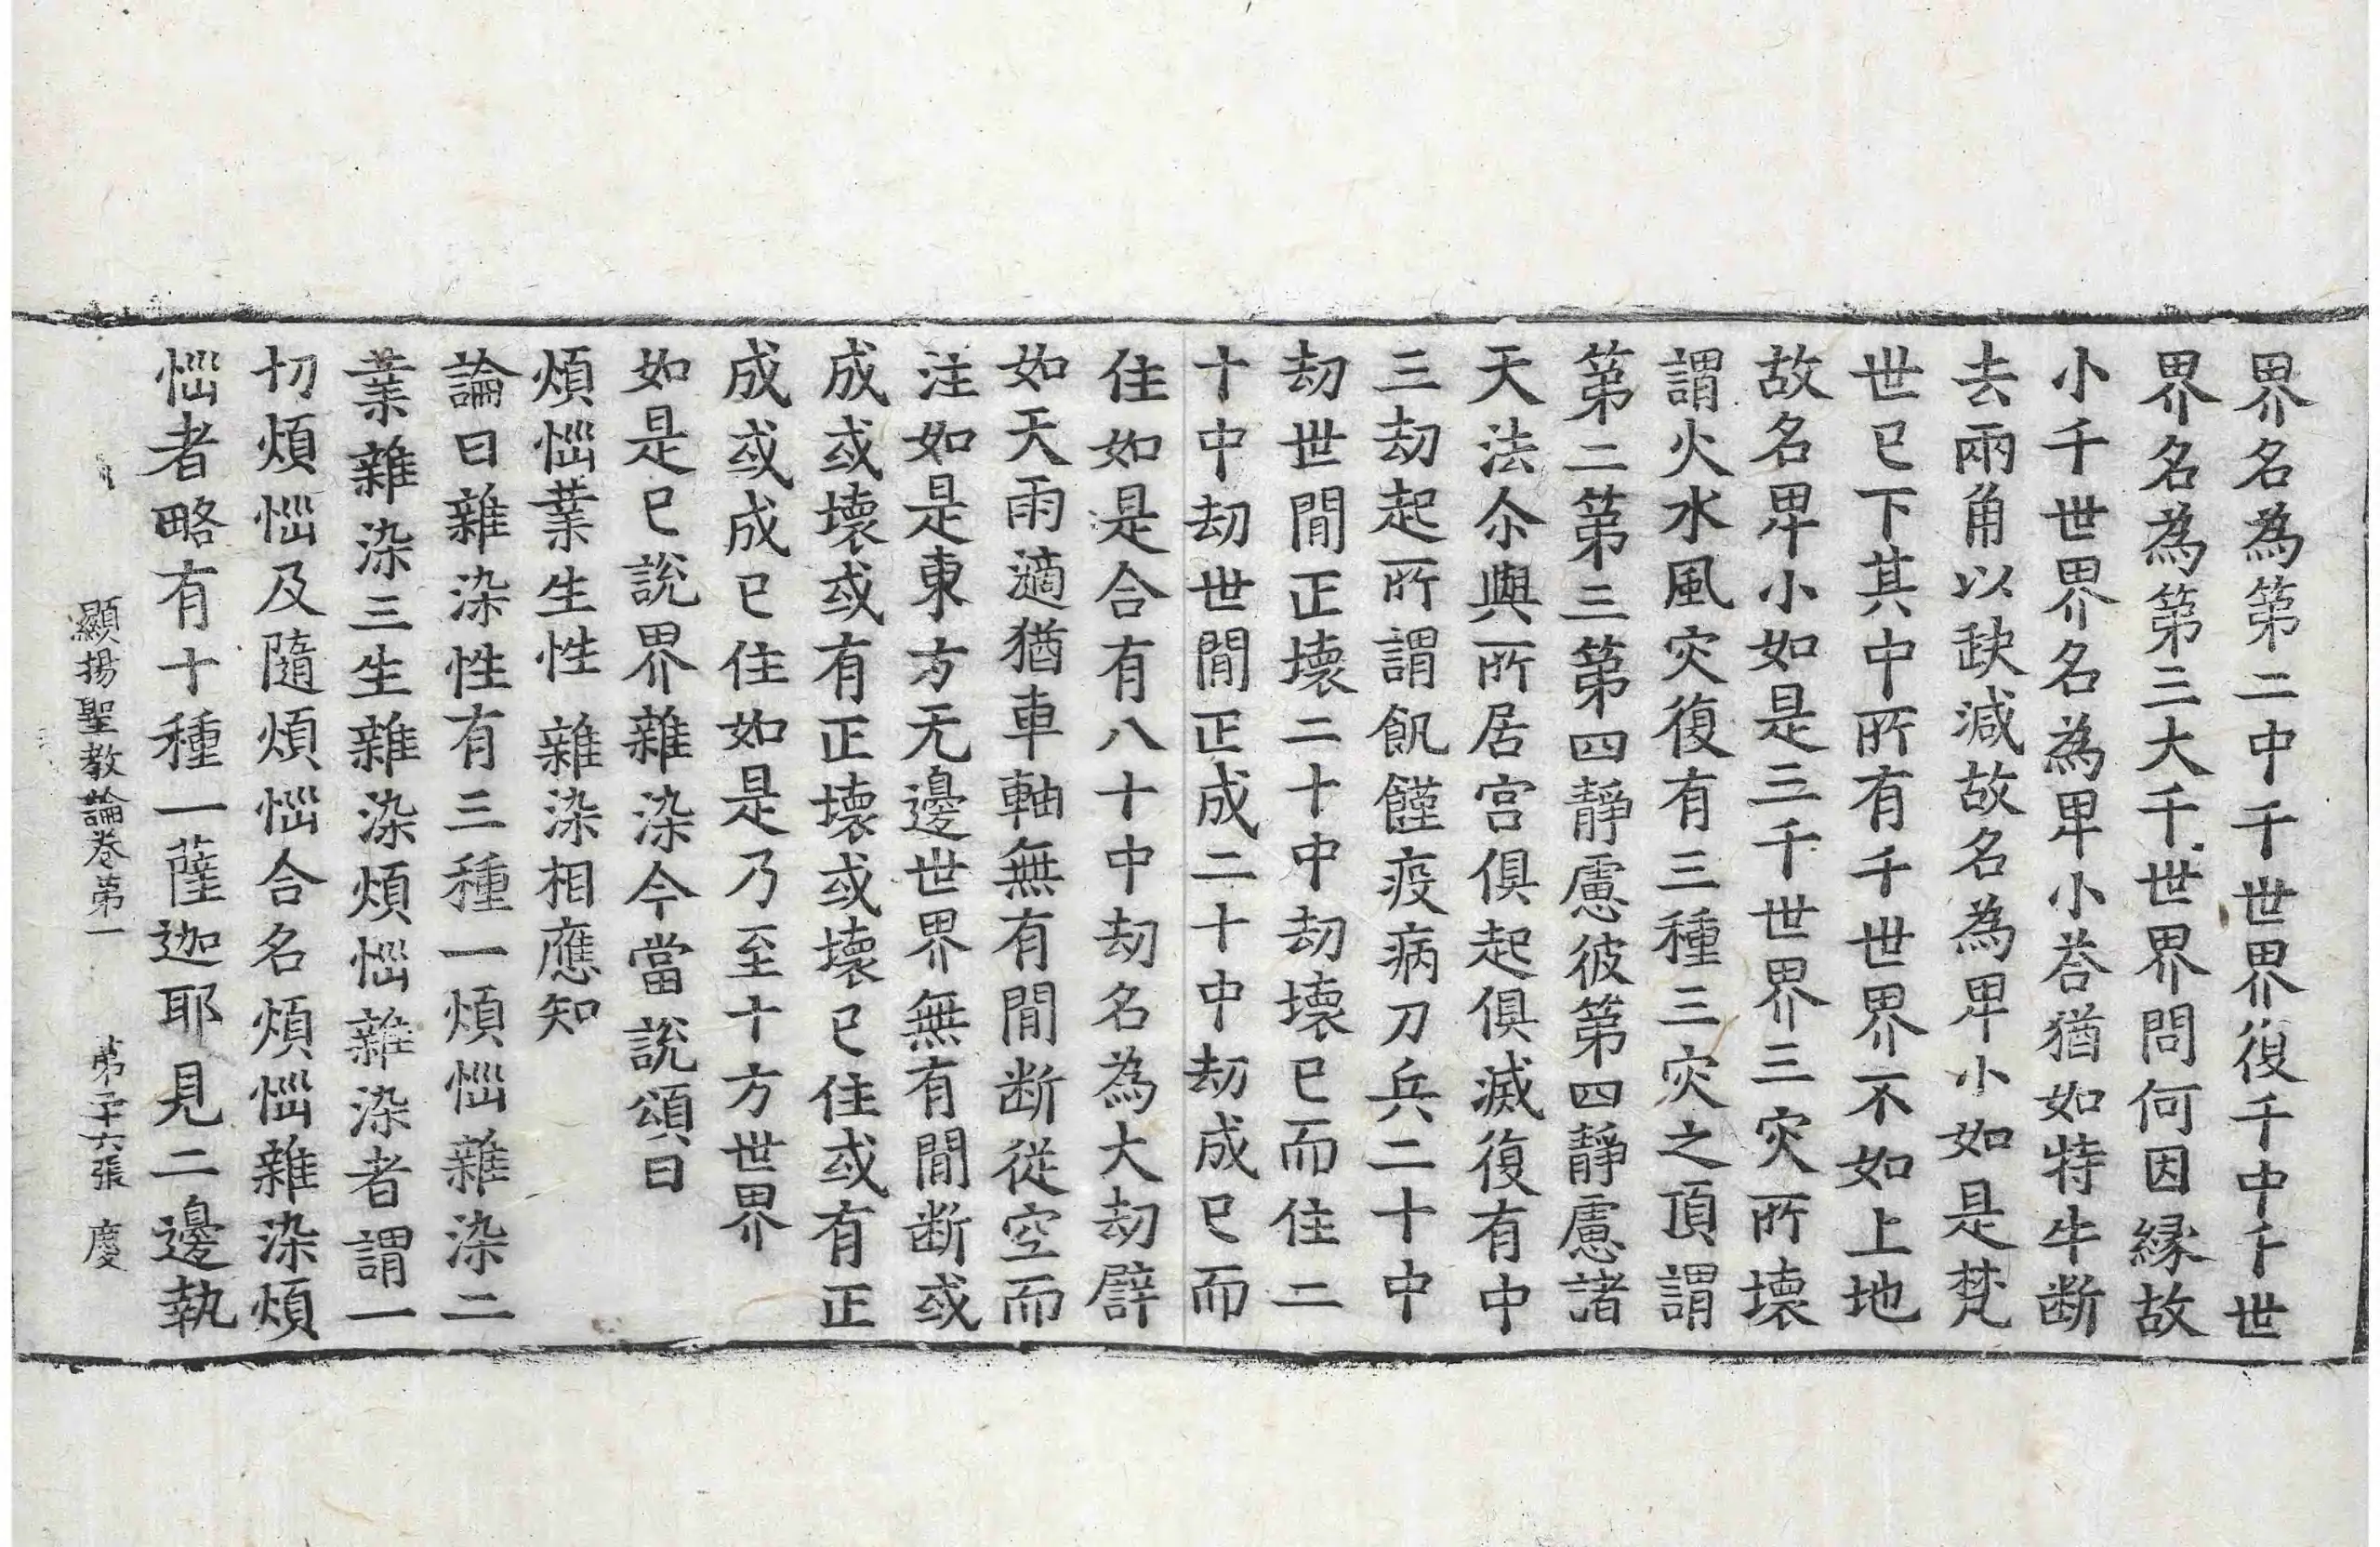 界名為第二中千世界復千中千世
界名為第三大千世界問何因縁故
小千世界名為卑小荅猶如特牛断
去兩角以缺減故名為卑小如是梵
世已下其中所有千世界不如上地
故名卑小如是三千世界三灾所壞
謂火水風灾復有三種三灾之頂謂
第二第三第四靜慮彼第四靜慮諸
天法尒與所居宫俱起俱滅復有中
三劫起所謂飢饉疫病刀兵二十中
劫世間正壞二十中劫壞已而住二
十中劫世間正成二十中劫成已而
住如是合有八十中劫名為大劫譬
如天雨適猶車軸無有間断從空而
注如是東方无邊世界無有間断或
成或壞或有正壞或壞已住或有正
成或成已住如是乃至十方世界
如是已說界雜染今當說頌曰
煩惱業生性 雜染相應知
論曰雜染性有三種一煩惱雜染二
業雜染三生雜染煩惱雜染者謂一
切煩惱及隨煩惱合名煩惱雜染煩
惱者略有十種一薩迦耶見二邊執
顯揚聖教論卷第一 第二十六張 慶